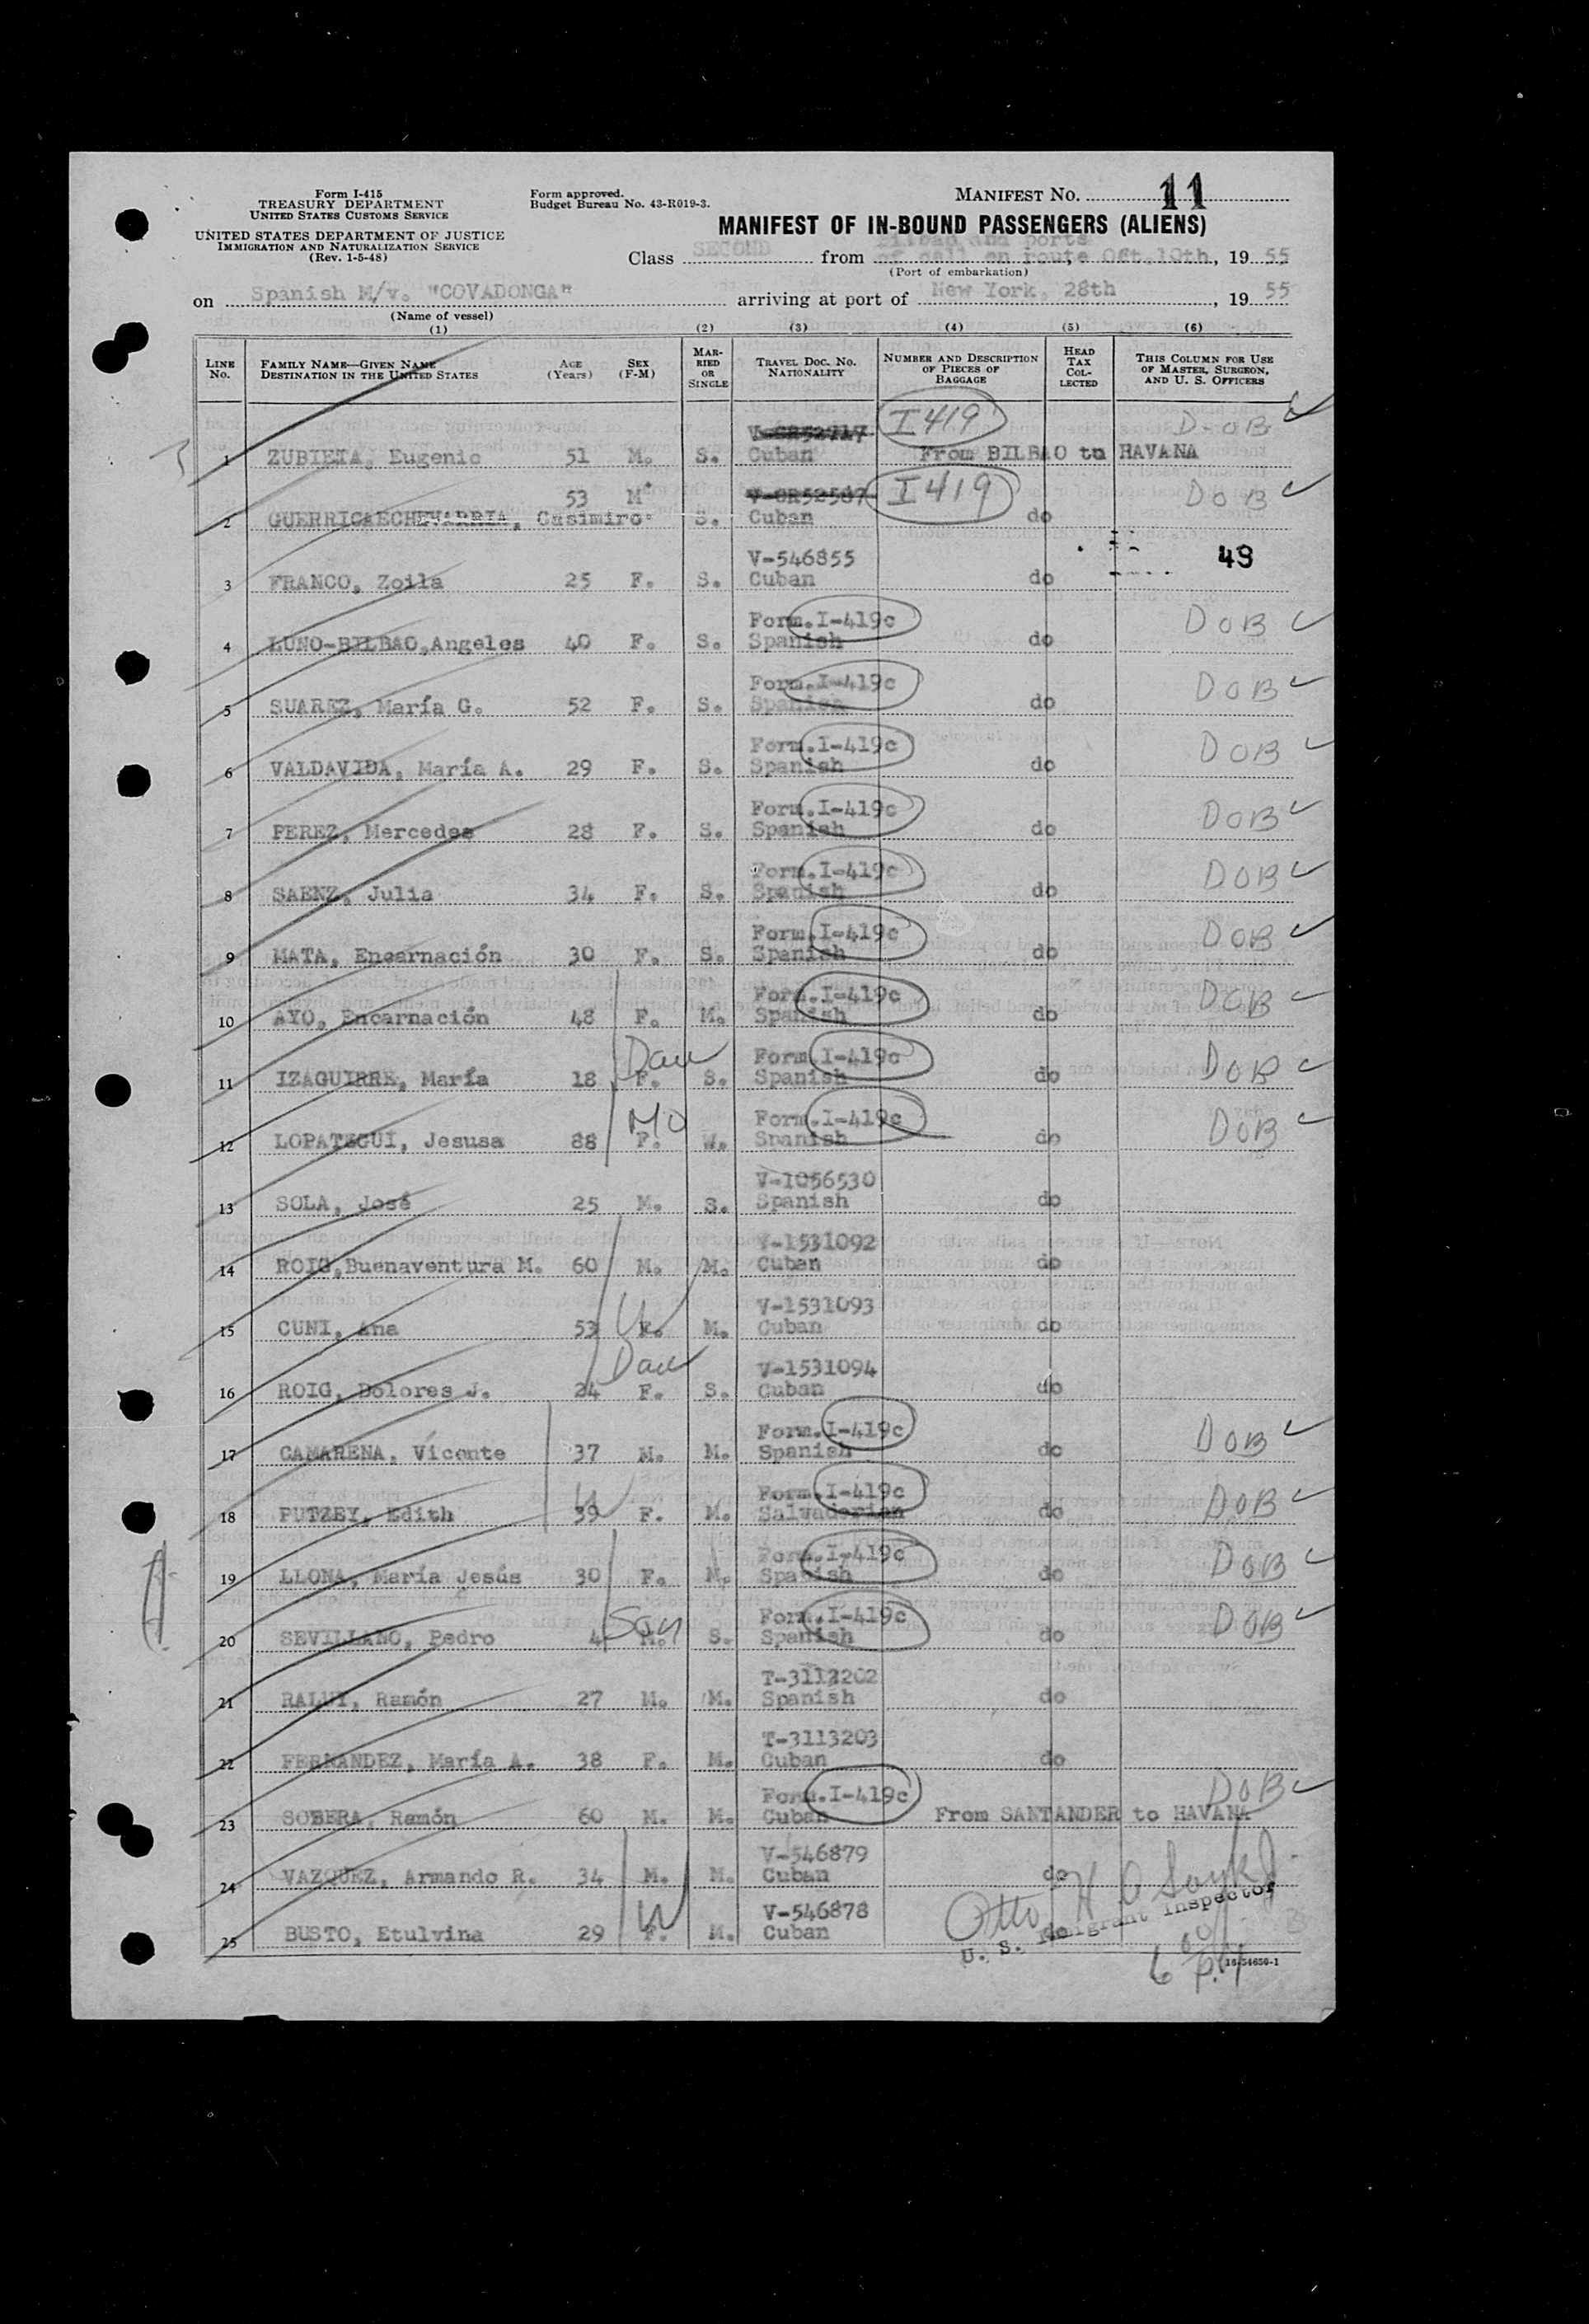 Form I-415
TREASURY DEPARTMENT
UNITED STATES CUSTOMS SERVICE
UNITED STATES DEPARTMENT OF JUSTICE
IMMIGRATION AND NATURALIZATION SERVICE
(Rev. 1-5-48)
Form approved.
Budget Bureau No. 43-R019-3.
MANIFEST NO. 11
MANIFEST OF IN-BOUND PASSENGERS (ALIENS)
Bilbao and ports
Class SECOND from of call en route Oct. 19th, 1955
(Port of embarkation)
on Spanish M/v. "COVADONGA" arriving at port of New York, 28th, 1955
(Name of vessel)
(1) (2) (3) (4) (5) (6)
LINE No. FAMILY NAME—GIVEN NAME DESTINATION IN THE UNITED STATES AGE (Years) SEX (F-M) MARRIED OR SINGLE TRAVEL DOC. NO. NATIONALITY NUMBER AND DESCRIPTION OF PIECES OF BAGGAGE HEAD TAX COLLECTED THIS COLUMN FOR USE OF MASTER, SURGEON, AND U. S. OFFICERS
I 419 D-OB
1 ZUBIETA, Eugenio 51 M. S. Cuban From BILBAO to HAVANA
53 M V-CR52587 I 419 DOB
2 GUERRICAECHEVARRIA, Casimiro S. Cuban do
V-546855 49
3 FRANCO, Zoila 25 F. S. Cuban do
Form.I-419c DOB
4 LUNO-BILBAO,Angeles 40 F. S. Spanish do
Form.I-419c DOB
5 SUAREZ, María G. 52 F. S. Spanish do
Form.I-419c DOB
6 VALDAVIDA, María A. 29 F. S. Spanish do
Form.I-419c DOB
7 PEREZ, Mercedes 28 F. S. Spanish do
Form.I-419c DOB
8 SAENZ, Julia 34 F. S. Spanish do
Form.I-419c DOB
9 MATA, Encarnación 30 F. S. Spanish do
Form.I-419c DOB
10 AYO, Encarnación 48 F. M. Spanish do
Dau Form.I-419c DOB
11 IZAGUIRRE, María 18 F. S. Spanish do
Mo Form.I-419c DOB
12 LOPATEGUI, Jesusa 88 F. W. Spanish do
V-1056530
13 SOLA, José 25 M. S. Spanish do
V-1531092
14 ROIG,Buenaventura M. 60 M. M. Cuban do
W V-1531093
15 CUNI, Ana 53 F. M. Cuban do
Dau V-1531094
16 ROIG, Dolores J. 24 F. S. Cuban do
Form.I-419c DOB
17 CAMARENA, Vicente 37 M. M. Spanish do
W Form.I-419c DOB
18 PUTZEY, Edith 39 F. M. Salvadorian do
Form.I-419c DOB
19 LLONA, María Jesús 30 F. M. Spanish do
Son Form.I-419c DOB
20 SEVILLANO, Pedro 4 M. S. Spanish do
T-3113202
21 RALUY, Ramón 27 M. M. Spanish do
T-3113203
22 FERNANDEZ, María A. 38 F. M. Cuban do
Form.I-419c DOB
23 SOBERA, Ramón 60 M. M. Cuban From SANTANDER to HAVANA
V-546879
24 VAZQUEZ, Armando R. 34 M. M. Cuban do
W V-546878 Otto H
25 BUSTO, Etulvina 29 F. M. Cuban do
U. S. Immigrant Inspector
16-54650-1